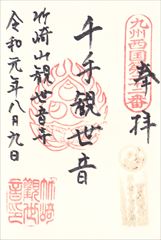 九州西国第二十二番
奉拝
千手観世音
竹崎山観世音寺
令和元年八月九日
竹崎
観世
音寺